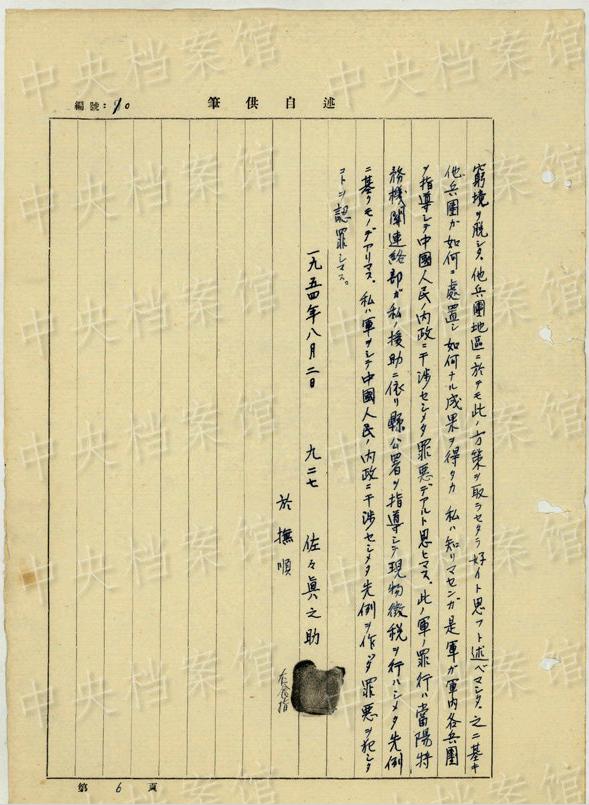 述自供筆
編號：10
窮境ヲ脱シタ、他兵團地區ニ於テモ此ノ方策ヲ取ラセタラ好イト思フト述ベマシタ。之ニ基キ
他兵團カ如何ニ處置シ如何ナル成果ヲ得タカ私ハ知リマセンガ是軍ガ軍内各兵團
ヲ指導シテ中國人民ノ内政ニ干渉セシメタ罪悪デアルト思ヒマス。此ノ軍ノ罪行ハ當陽特
務機關連絡部ガ私ノ援助ニ依リ縣公署ヲ指導シテ現物徴税ヲ行ハシメタ先例
ニ基クモノデアリマス。私ハ軍ヲシテ中國人民ノ内政ニ干渉セシメタ先例ヲ作ッタ罪悪ヲ犯シタ
コトヲ認罪シマス。
一九五四年八月二日 九二七 佐々眞之助
於撫順
右食指
第6頁
中央档案馆